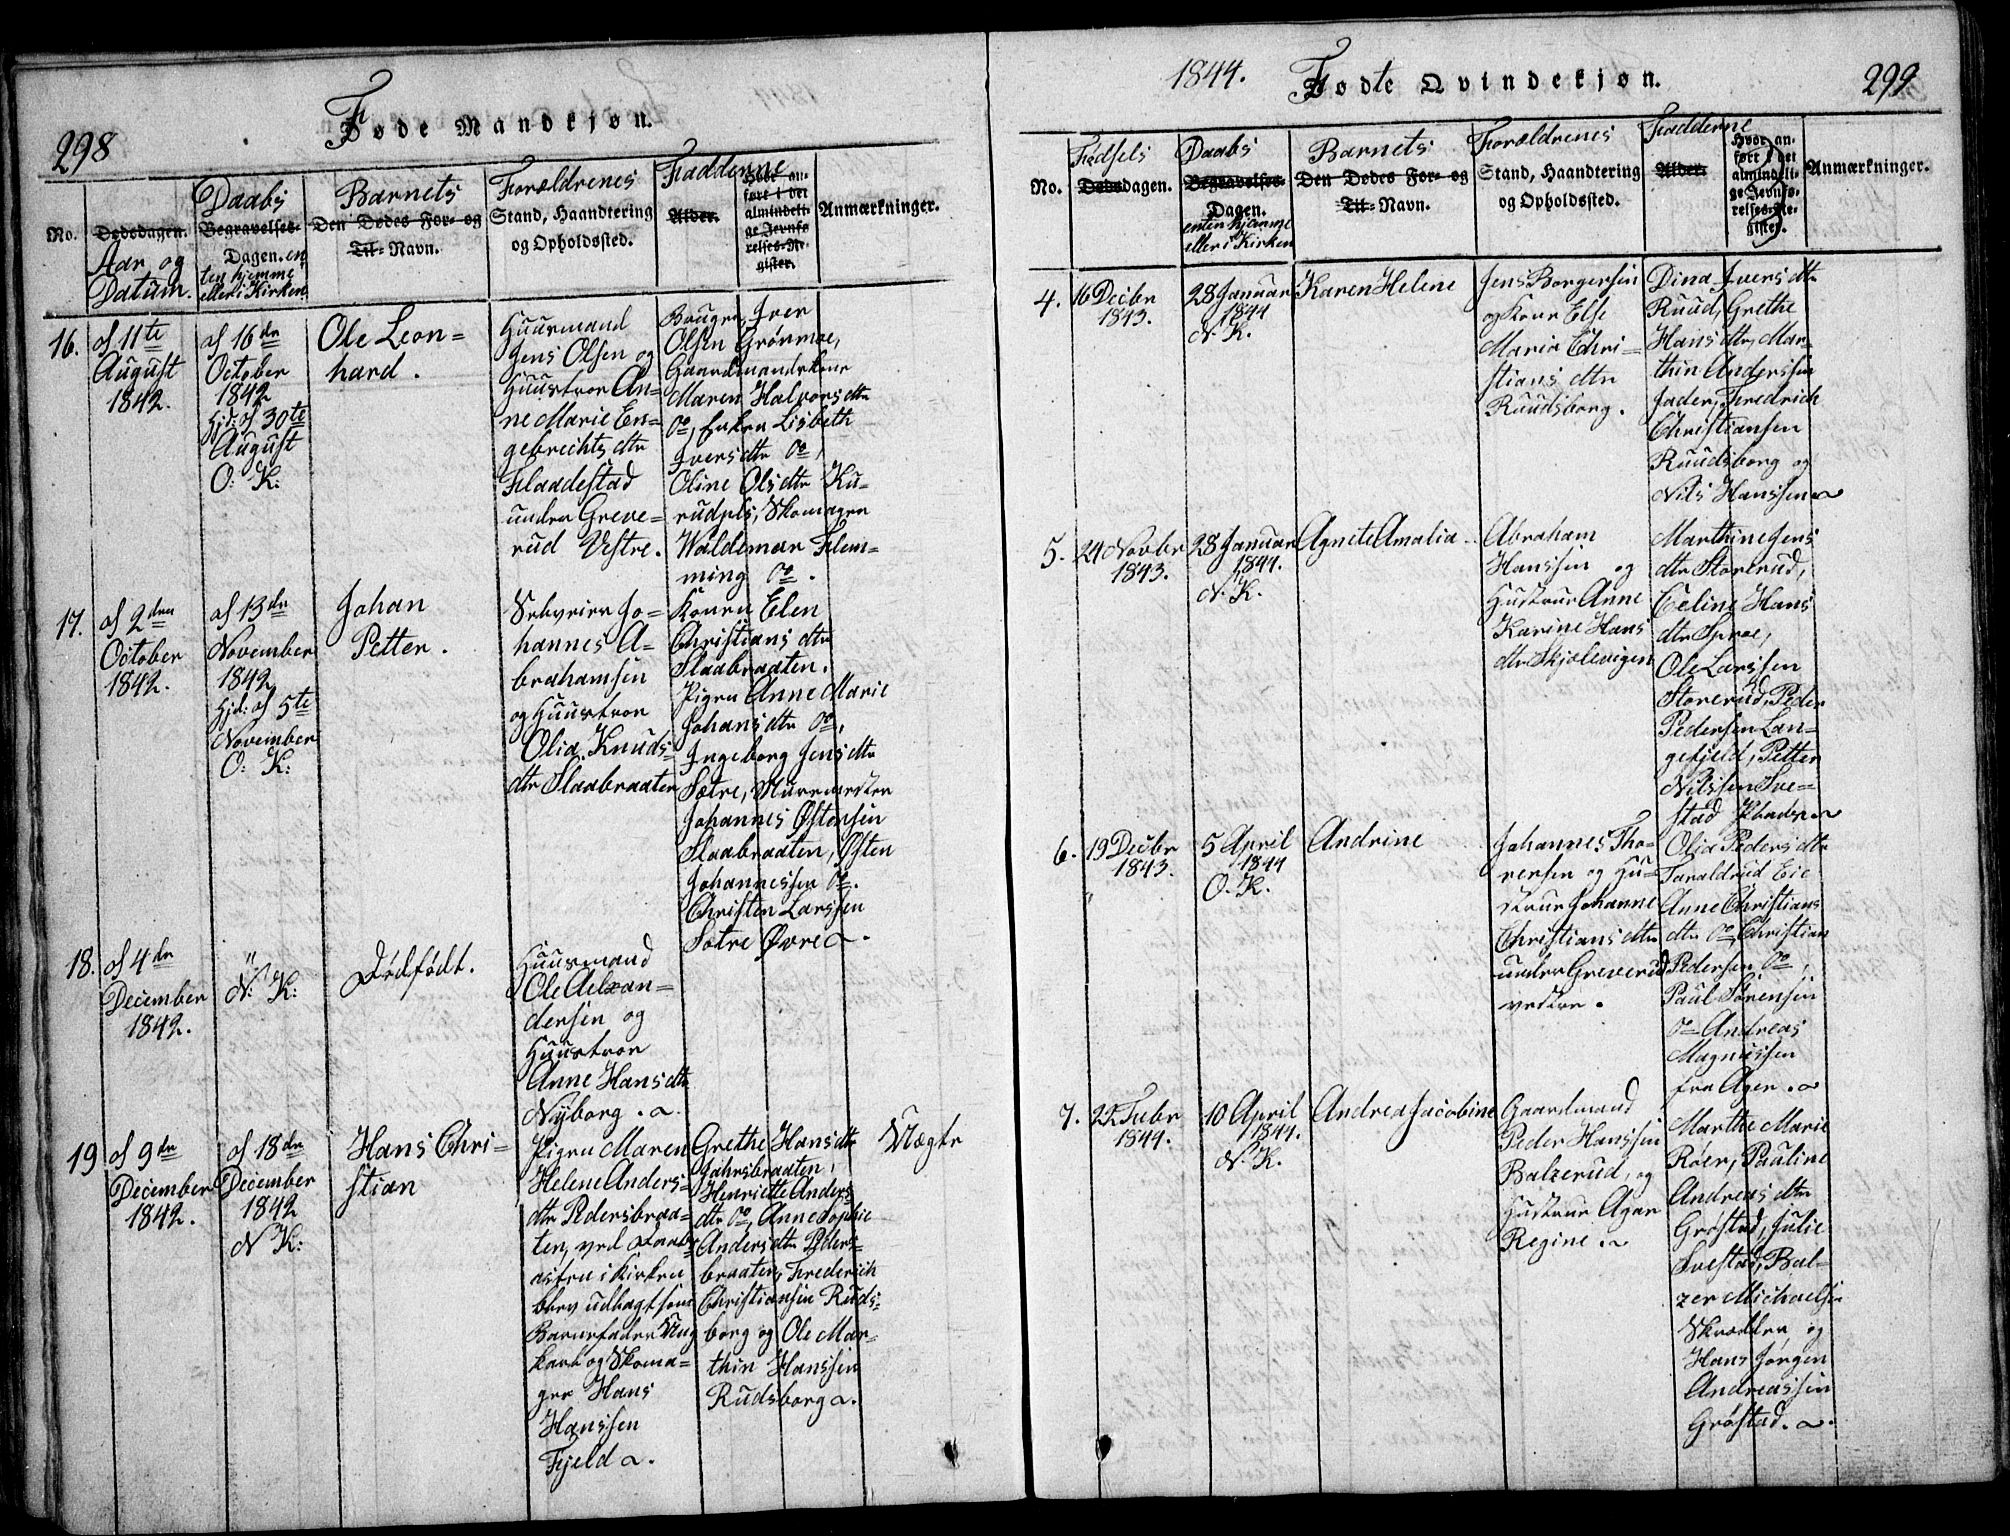 298
Føde Mandkjøn.
No.
Dødsdagen.
Aar og
Datum.
Daabs
Begravelses-
Dagen. en
ten hjemme
eller i Kirken
Barnets
Den Dødes For- og
Til- Navn.
Forældrenes
Stand, Haandtering
og Opholdssted.
Fadderne
Alder.
Hvor an-
ført i det
almindeli-
ge Jevnfø
relses-Re-
gister.
Anmærkninger.
16.
d 11te
August
1842.
d 16de
October
1842
Hjd: d 30te
August
O: K:
Ole Leon-
hard.
Huusmand
Jens Olsen og
Huustroe An-
ne Marie En-
gebrechts dtr
Flaadestad
under Greve-
rud Vestre.
Bruger Iver
Olsen Grønmoe,
Gaardmandskone
Maren Halvors dtr
Do, Enken Lisbeth
Ivers dtr Do,
Oline Ols dtr Ku-
rudpls, Skomager
Waldemar Flem-
ming Do.
17.
d 2den
October
1842.
d 13de
November
1842
Hjd: d 5te
November
O: K:
Johan
Petter.
Selveier Jo-
hannes A-
brahamsen
og Huustroe
Olia Knuds-
dtr Slaabraaten
Konen Elen
Christians dtr
Slaabraaten,
Pigen Anne Marie
Johans dtr Do,
Ingeborg Jens dtr
Sætre, Muurmester
Johannes Østensen
Slaabraaten, Østen
Johannessen Do.
Christen Larssen
Sætre Øvre.
18.
d 4de
December
1842.
"
N: K:
Dødfødt.
Huusmand
Ole Aelxan-
dersen og
Huustroe
Anne Hans dtr
Nyborg.
19
d 9de
December
1842.
d 18de
December
1842
N K:
Hans Chri-
stian
Pigen Maren
Helene Anders-
dtr Pedersbraa-
ten, ved Daab-
i Kirken
blev udlagt som
Barnefader Ung
karl og Skoma-
ger Hans
Hanssen
Fjeld.
Grethe Hans dtr
Jahrsbraaten,
Henriette Anders
dtr Do, Anne Sophie
Anders dtr Peders-
braaten, Frederich
Christiansen Ruds-
borg og Ole Mar-
thin Hanssen
Rudsborg.
Uægte
1844.
Fødte Qvindekjøn.
299
No.
Fødsels
Dødsdagen.
Daabs
Begravelses-
Dagen.
enten hjemme
eller i Kirken
Barnets
Den Dødes For- og
Til- Navn.
Forældrenes
Stand, Haandtering
og Opholdssted.
Fadderne
Alder.
Hvor an-
ført i det
almindeli-
ge Jevnfø-
relses-Re-
gister.
Anmærkninger.
4.
16 Decbr
1843.
28 Januar
1844
N. K.
Karen Helene
Jens Borgersen
og Kone Else
Maria Chri-
stians dtr
Ruudsborg.
Dina Ivers dtr
Ruud, Grethe
Hans dtr, Mar-
thin Anderssen
Fredrich
Christiansen
Ruudsborg og
Nils Hanssen
5.
24 Novbr
1843.
28 Januar
1844.
N. K.
Agnete Amalia
Abraham
Hanssen og
Hustrue Anne
Karine Hans
dtr Skjølevigen
Marthine Jens
dtr Storerud,
Celine Hans
dtr Sproe,
Ole Larssen
Storerud, Peder
Pedersen Lan-
gefjeld, Petter
Nilssen Sve-
stad
6.
19 Decbr
1843.
"
5 April
1844
O. K.
Andrine
Johannes Tho-
resen og Hu-
strue Johanne
Christians dtr
under Greverud
vestre.
Olia Peders dtr
Taraldrud Eie
Anne Christians
dtr Do, Christian
Pedersen Do,
Paul Sørensen
Do Andreas
Magnussen
fra Ager.
7.
22 Febr
1844.
10 April
1844.
N. K.
Andrea Jacobine
Gaardmand
Peder Hanssen
Balzerud, og
Hustrue Agar
Regine.
Marthe Marie
Røer, Pauline
Andreas dtr
Grøstad, Julie
Svestad, Bal-
zer Michaelsen
Skrædder, og
Hans Jørgen
Andreassen
Grøstad.